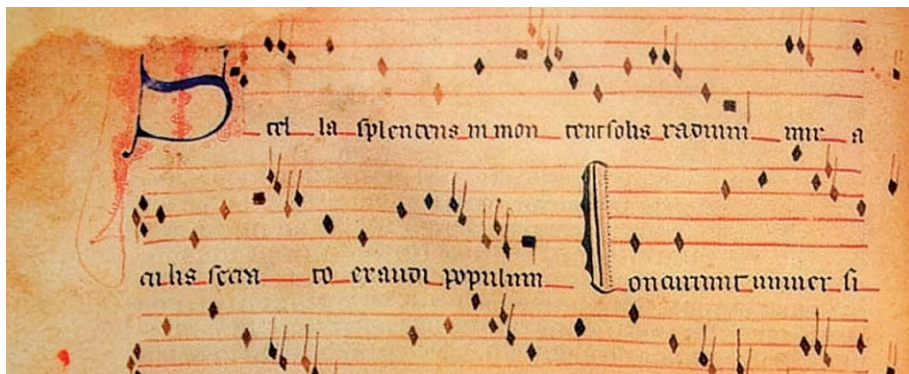 Stel la splendens in mon te ut solis radium mir a
culis serra to exaudi populum Concurrunt univer si